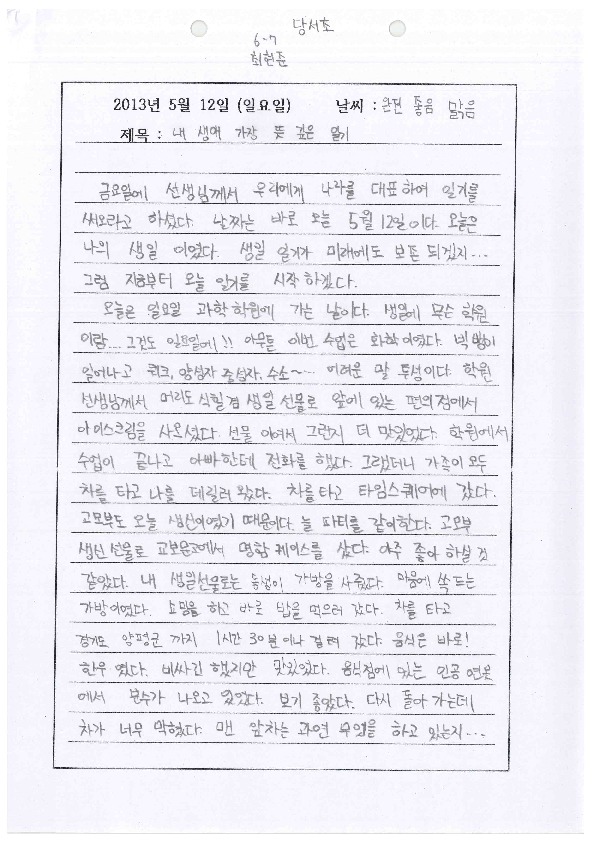 당서초
6-7
최현준
2013년 5월 12일 (일요일) 날씨 : 완전 좋음 맑음
제목 : 내 생애 가장 뜻 깊은 일기
금요일에 선생님께서 우리에게 나라를 대표하여 일기를
써오라고 하셨다. 날짜는 바로 오늘 5월 12일이다. 오늘은
나의 생일 이였다. 생일 일기가 미래에도 보존 되겠지...
그럼 지금부터 오늘 일기를 시작 하겠다.
오늘은 일요일 과학학원에 가는 날이다. 생일에 무슨 학원
이람... 그것도 일요일에!! 아무튼 이번 수업은 화학이였다. 빅뱅이
일어나고 쿼크, 양성자 중성자, 수소~... 어려운 말 투성이다. 학원
선생님께서 머리도 식힐 겸 생일 선물로 앞에 있는 편의점에서
아이스크림을 사오셨다. 선물 이여서 그런지 더 맛있었다. 학원에서
수업이 끝나고 아빠한테 전화를 했다. 그랬더니 가족이 모두
차를 타고 나를 데릴러 왔다. 차를 타고 타임스퀘어에 갔다.
고모부도 오늘 생신이였기 때문이다. 늘 파티를 같이한다. 고모부
생신 선물로 교보문고에서 명함 케이스를 샀다. 아주 좋아 하실 것
같았다. 내 생일선물로는 동생이 가방을 사줬다. 마음에 쏙 드는
가방이였다. 쇼핑을 하고 바로 밥을 먹으러 갔다. 차를 타고
경기도 양평군 까지 1시간 30분이나 걸려 갔다. 음식은 바로!
한우 였다. 비싸긴 했지만 맛있었다. 음식점에 있는 인공 연못
에서 분수가 나오고 있었다. 보기 좋았다. 다시 돌아 가는데
차가 너무 막혔다. 맨 앞차는 과연 무엇을 하고 있는지...